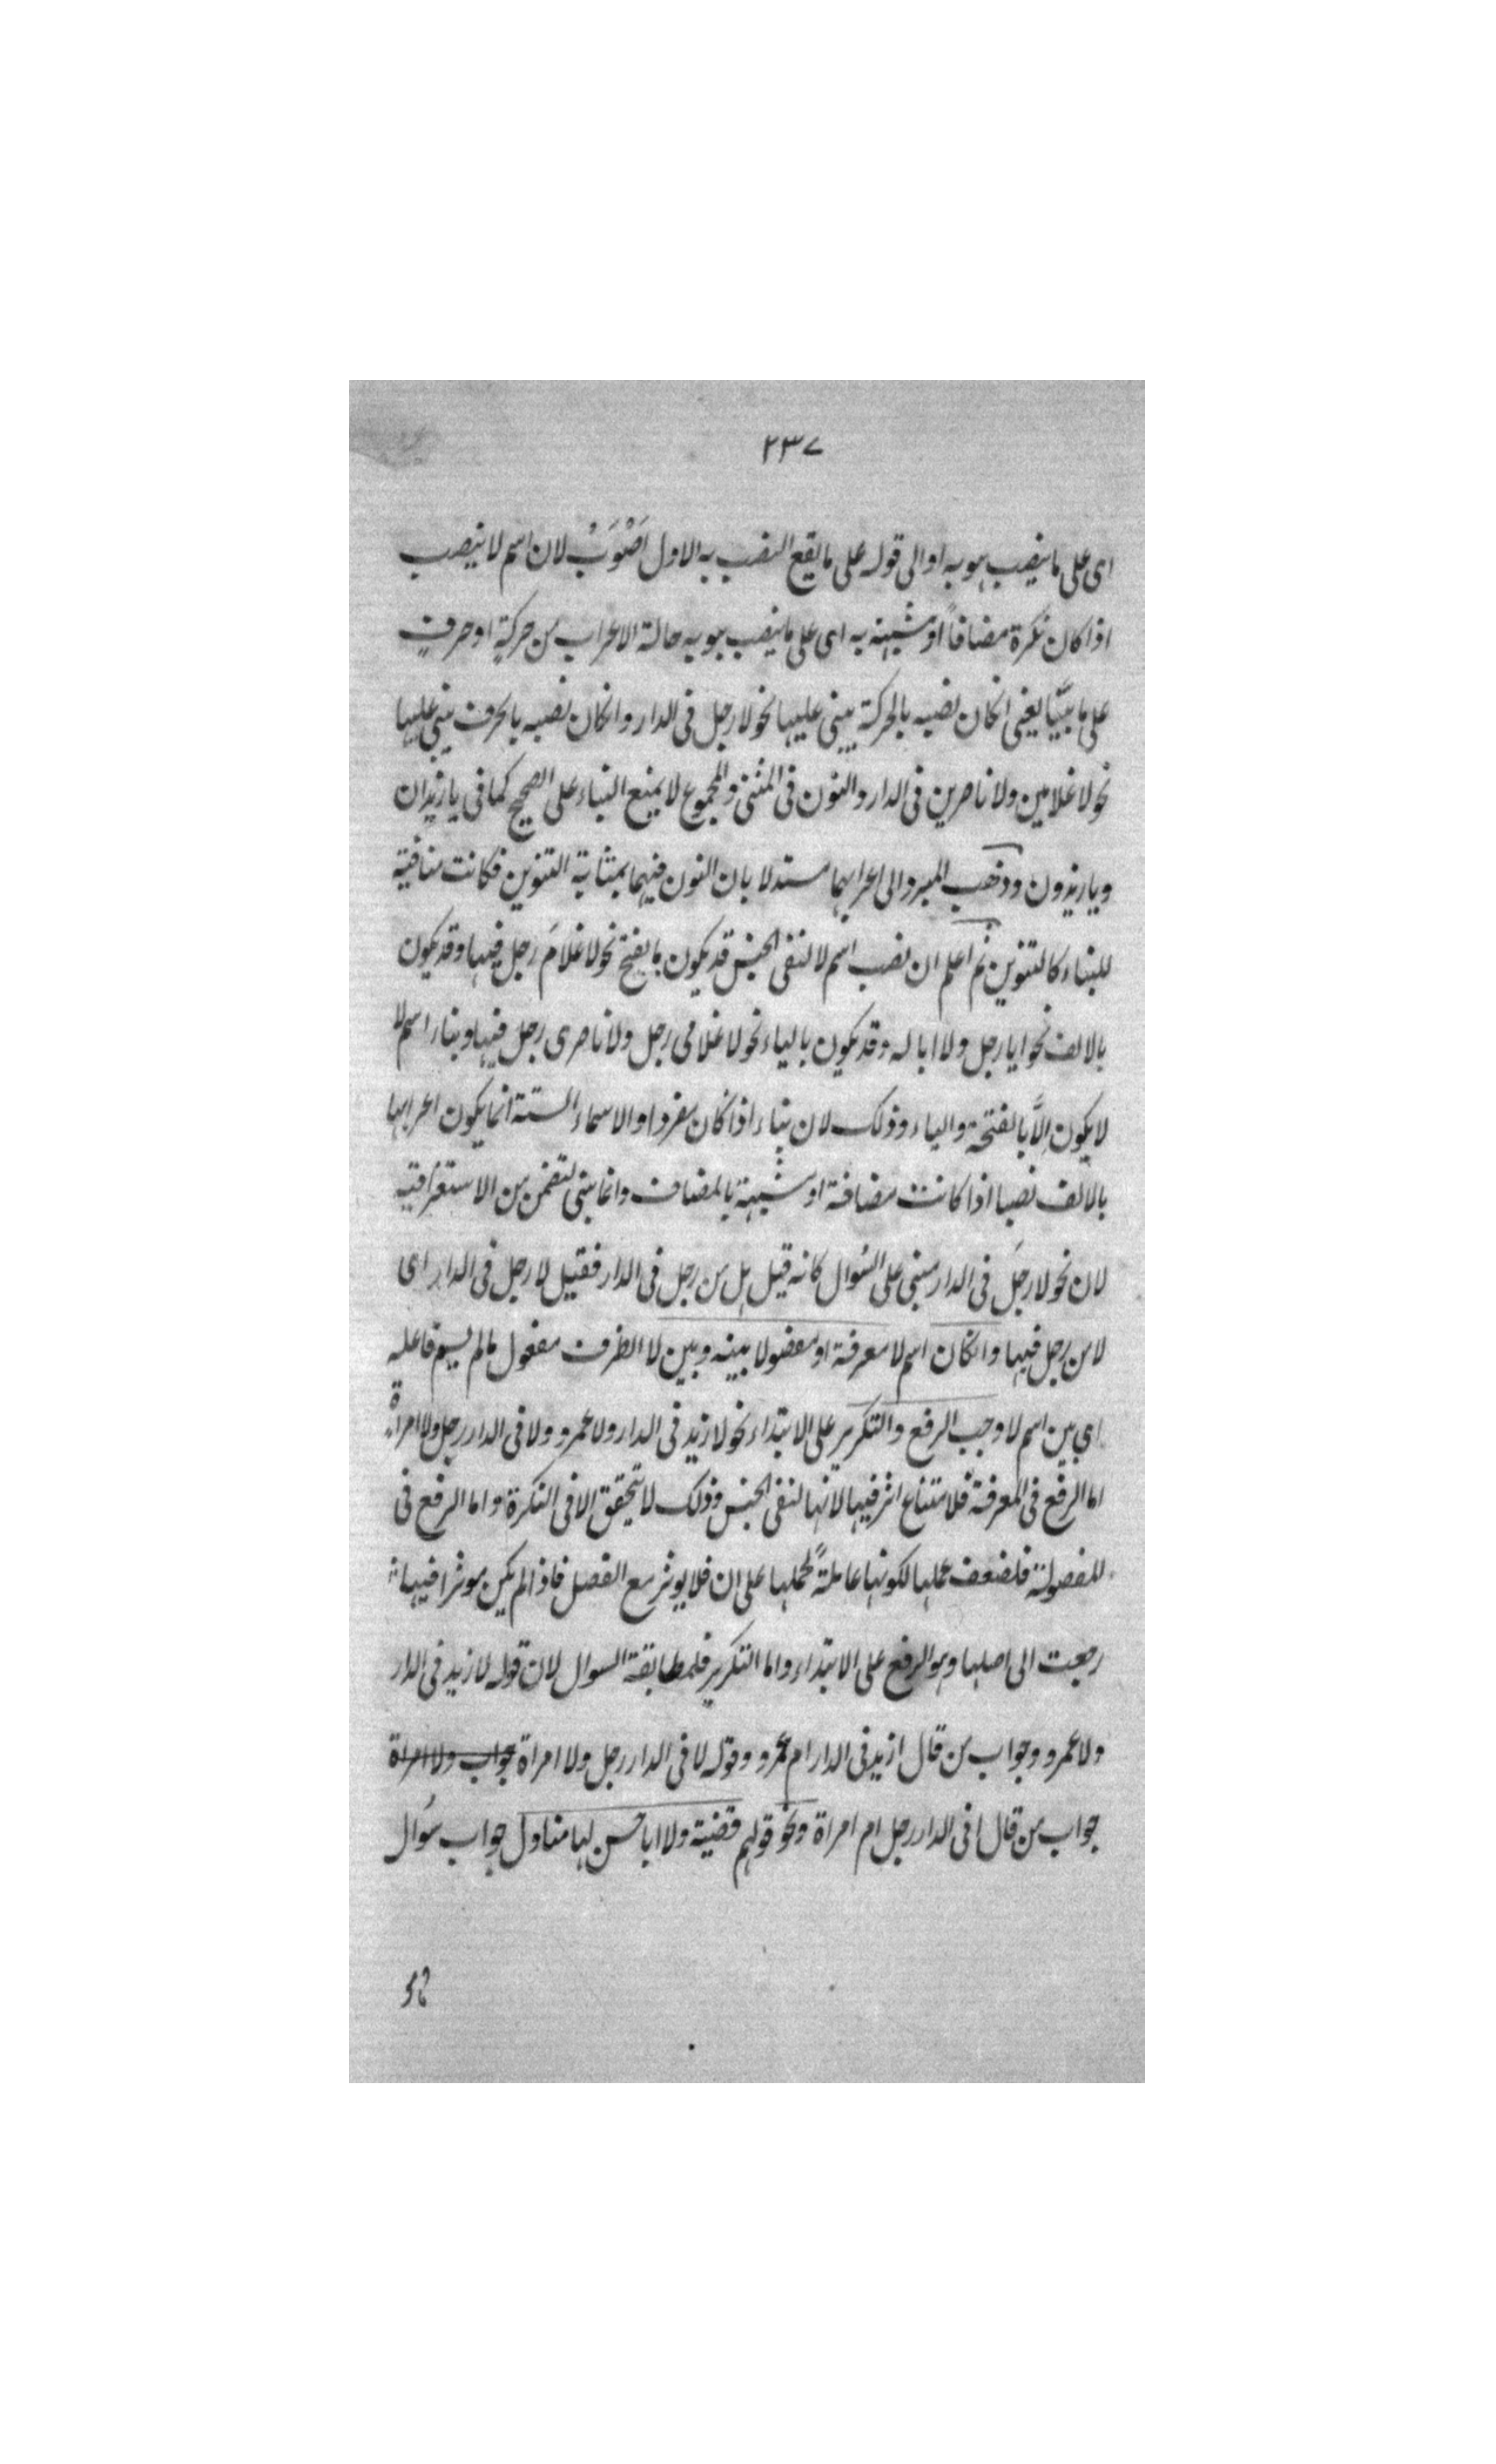 ٢٣٧
اى على ما ينصب هو به او الى قوله على ما يقع النصب به الاول اَصْوَبُ لان اسم لا ينصب
اذا كان نكرة مضافاً او شبيهة به اى على ما ينصب هو به حالة الاعراب من حركةٍ او حرفٍ
على ما بيّنّا يعنى انكان نصبه بالحركة يبنى عليها نحو لا رجل فى الدار وانكان نصبه بالحرف يبنى عليها
نحو لا غلامين ولا ناصرين فى الدار والنون فى المثنى والمجموع لا يمنع البناء على الصحيح كما فى يا زيدان
ويا زيدون وذهب المبرد الى اعرابهما مستدلا بان النون فيهما بمثابة التنوين فكانت منافية
للبناء كالتنوين ثم اعلم ان نصب اسم لا لنفى الجنس قد يكون بالفتح نحو لا غلامَ رجل فيها وقد يكون
بالالف نحو ابا رجل ولا ابا له وقد يكون بالياء نحو لا غلامى رجل ولا ناصرى رجل فيها وبناء اسم لا
لا يكون اِلَّا بالفتحة والياء وذلك لان بناء اذا كان مفردا والاسماء الستة انما يكون اعرابها
بالالف نصبا اذا كانت مضافة او شبيهة بالمضاف وانما بنى لتضمن من الاستغراقية
لان نحو لا رجلَ فى الدار مبنى على السُوال كانه قيل هل من رجل فى الدار فقيل لا رجل فى الدار اى
لا من رجل فيها وانكان اسم لا معرفة او مفصولا بينه وبين لا الظرف مفعول مالم يسم فاعله
اى بين اسم لا وجب الرفع والتكرير على الابتداء نحو لا زيد فى الدار ولا عمرو ولا فى الدار رجل ولا امراةٌ
اما الرفع فى المعرفة فلامتناع اثر فيها لانها لنفى الجنس وذلك لا يتحقق الا فى النكرة واما الرفع فى
المفصولة فلضعف عملها لكونها عاملةً لحملها على ان فلا يوثر مع الفصل فاذا لم يكن موثرا فيها
رجعت الى اصلها وهو الرفع على الابتداء واما التكرير فلمطابقة السوال لان قوله لا زيد فى الدار
ولا عمرو وجواب من قال ازيد فى الدار ام عمرو وقوله لا فى الدار رجل ولا امراة جواب ولا امراة
جواب من قال افى الدار رجل ام امراة ونحو قولهم قضية ولا ابا حسن لها متاول جواب سُوال